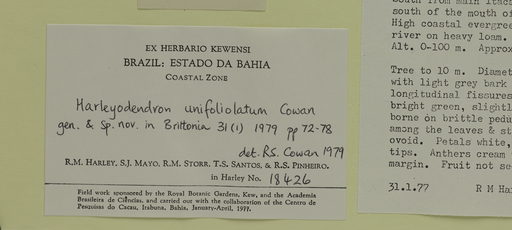 EX HERBARIO KEWENSI
BRAZIL: ESTADO DA BAHIA
COASTAL ZONE
Harleyodendron unifoliolatum Cowan
gen. & sp. nov. in Brittonia 31(1) 1979 pp 72-78
det. R.S. Cowan 1979
R.M. HARLEY, S.J. MAYO, R.M. STORR, T.S. SANTOS, & R.S. PINHEIRO,
in Harley No. 18426
Field work sponsored by the Royal Botanic Gardens, Kew, and the Academia
Brasileira de Ciências, and carried out with the collaboration of the Centro de
Pesquisas do Cacau, Itabuna, Bahia, January-April, 1977.
South from main Itac
south of the mouth of
High coastal evergree
river on heavy loam.
Alt. 0-100 m. Approx
Tree to 10 m. Diamet
with light grey bark
longitudinal fissures
bright green, slightl
borne on brittle pedu
among the leaves & st
ovoid. Petals white,
tips. Anthers cream
margin. Fruit not se
31.1.77 R M Har